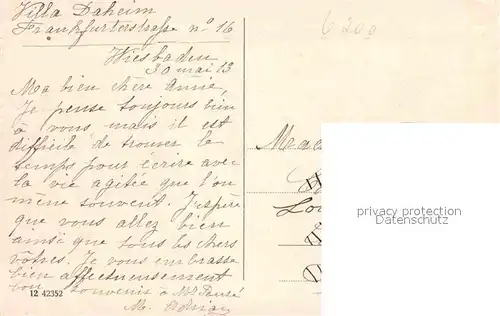 Villa Daheim
Frankfurterstrasse nº 16
Wiesbaden
30 mai 13
Ma bien chère Annie,
Je pense toujours bien
à vous, mais il est
difficile de trouver le
temps pour écrire avec
la vie agitée que l'on
mène souvent. J'espère
que vous allez bien
ainsi que tous les chers
vôtres. Je vous embrasse
bien affectueusement
bon souvenir à Mr
M.
12 42352
privacy protection
Datenschutz